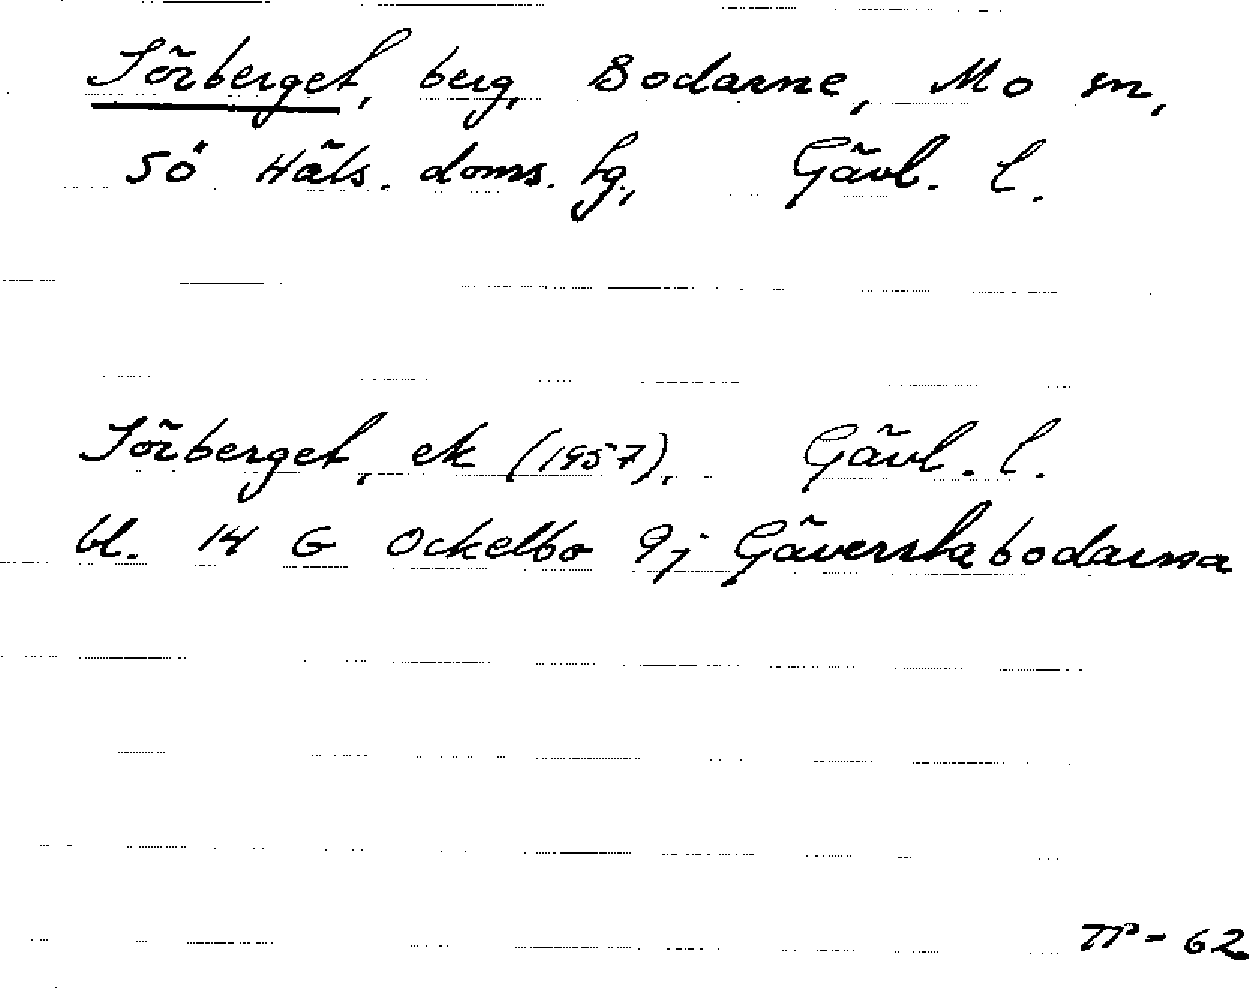 Sörberget, berg, Bodarne, Mo sn,
Sö Häls. doms. hg, Gävl. l.
Sörberget, ek (1957), Gävl. l.
bl. 14 G Ockelbo 9j Gäverskabodarna
TP - 62